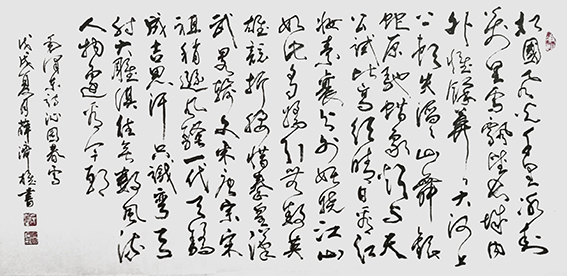 北國風光千里冰封
萬里雪飄望長城內
外惟餘莽々大河上
下頓失滔々山舞銀
蛇原馳蠟象欲与天
公試比高須晴日看紅
妝素裹分外妖嬈江山
如此多嬌引無數英
雄競折腰惜秦皇漢
武畧輸文采唐宗宋
祖稍遜風騷一代天驕
成吉思汗只識彎弓
射大雕俱往矣數風流
人物還看今朝
毛澤東詩沁園春雪
戊戌夏月薛澤書